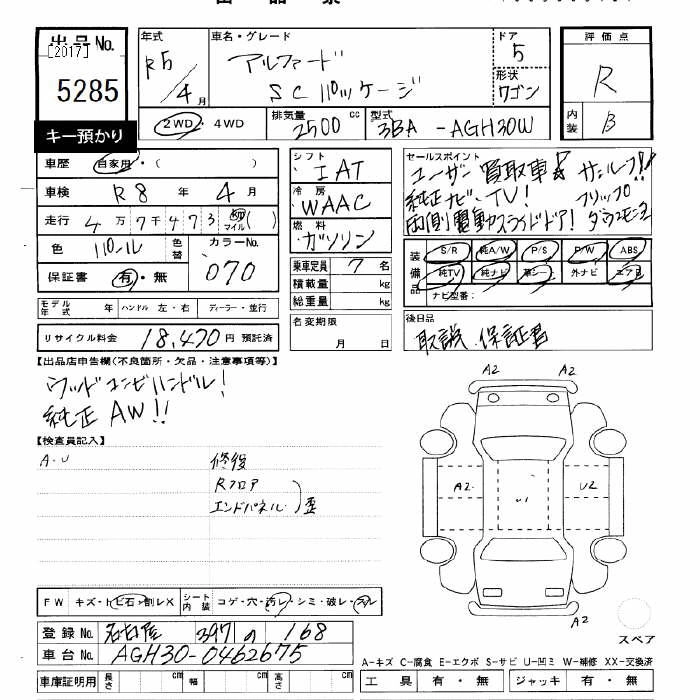 出品No.
[2017]
5285
キー預かり
年式 R5/4月
車名・グレード アルファード
SCパッケージ
ドア 5
形状 ワゴン
評価点 R
内装 B
2WD・4WD
排気量 2500 cc
型式 3BA -AGH30W
車歴 自家用・( )
車検 R8 年 4 月
走行 4万7千473 km マイル( )
色 パール
色替
カラーNo. 070
保証書 有・無
シフト IAT
冷房 WAAC
燃料 ガソリン
乗車定員 7 名
積載量 kg
総重量 kg
セールスポイント
ユーザー買取車 サンルーフ!!
純正ナビ・TV! フリップ
両側電動スライドドア! ダウンモニター
装備品 S/R 純A/W P/S P/W ABS
純TV 純ナビ 革シート 外ナビ エアB
ナビ型番:
モデル年式 年 ハンドル 左・右 ディーラー・並行
リサイクル料金 18,470 円 預託済
名変期限 月 日
後日品
取説 保証書
【出品店申告欄(不良箇所・欠品・注意事項等)】
ウッドコンビハンドル!
純正 AW!!
【検査員記入】
A・U 修復
Rフロア
エンドパネル 歪
A2 A2
A2 U1 U2
A2
スペア
FW キズ・トビ石・割レX
シート内装 コゲ・穴・汚レ・シミ・破レ・スレ
登録No. 名古屋 397 の 168
車台No. AGH30-0462675
車庫証明用 長さ cm 幅 cm 高さ cm
A-キズ C-腐食 E-エクボ S-サビ U-凹ミ W-補修 XX-交換済
工具 有・無 ジャッキ 有・無